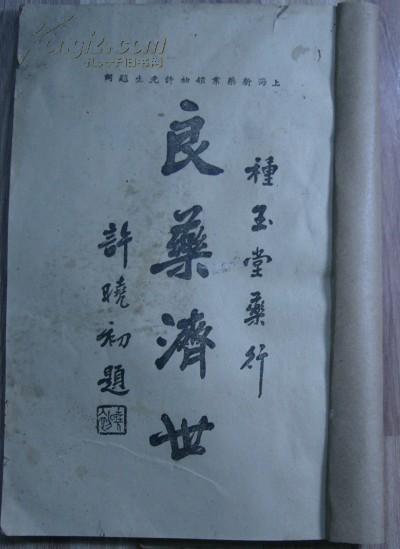 孔夫子旧书网
上海新藥業領袖許先生題詞
種玉堂藥行
良藥濟世
許曉初題